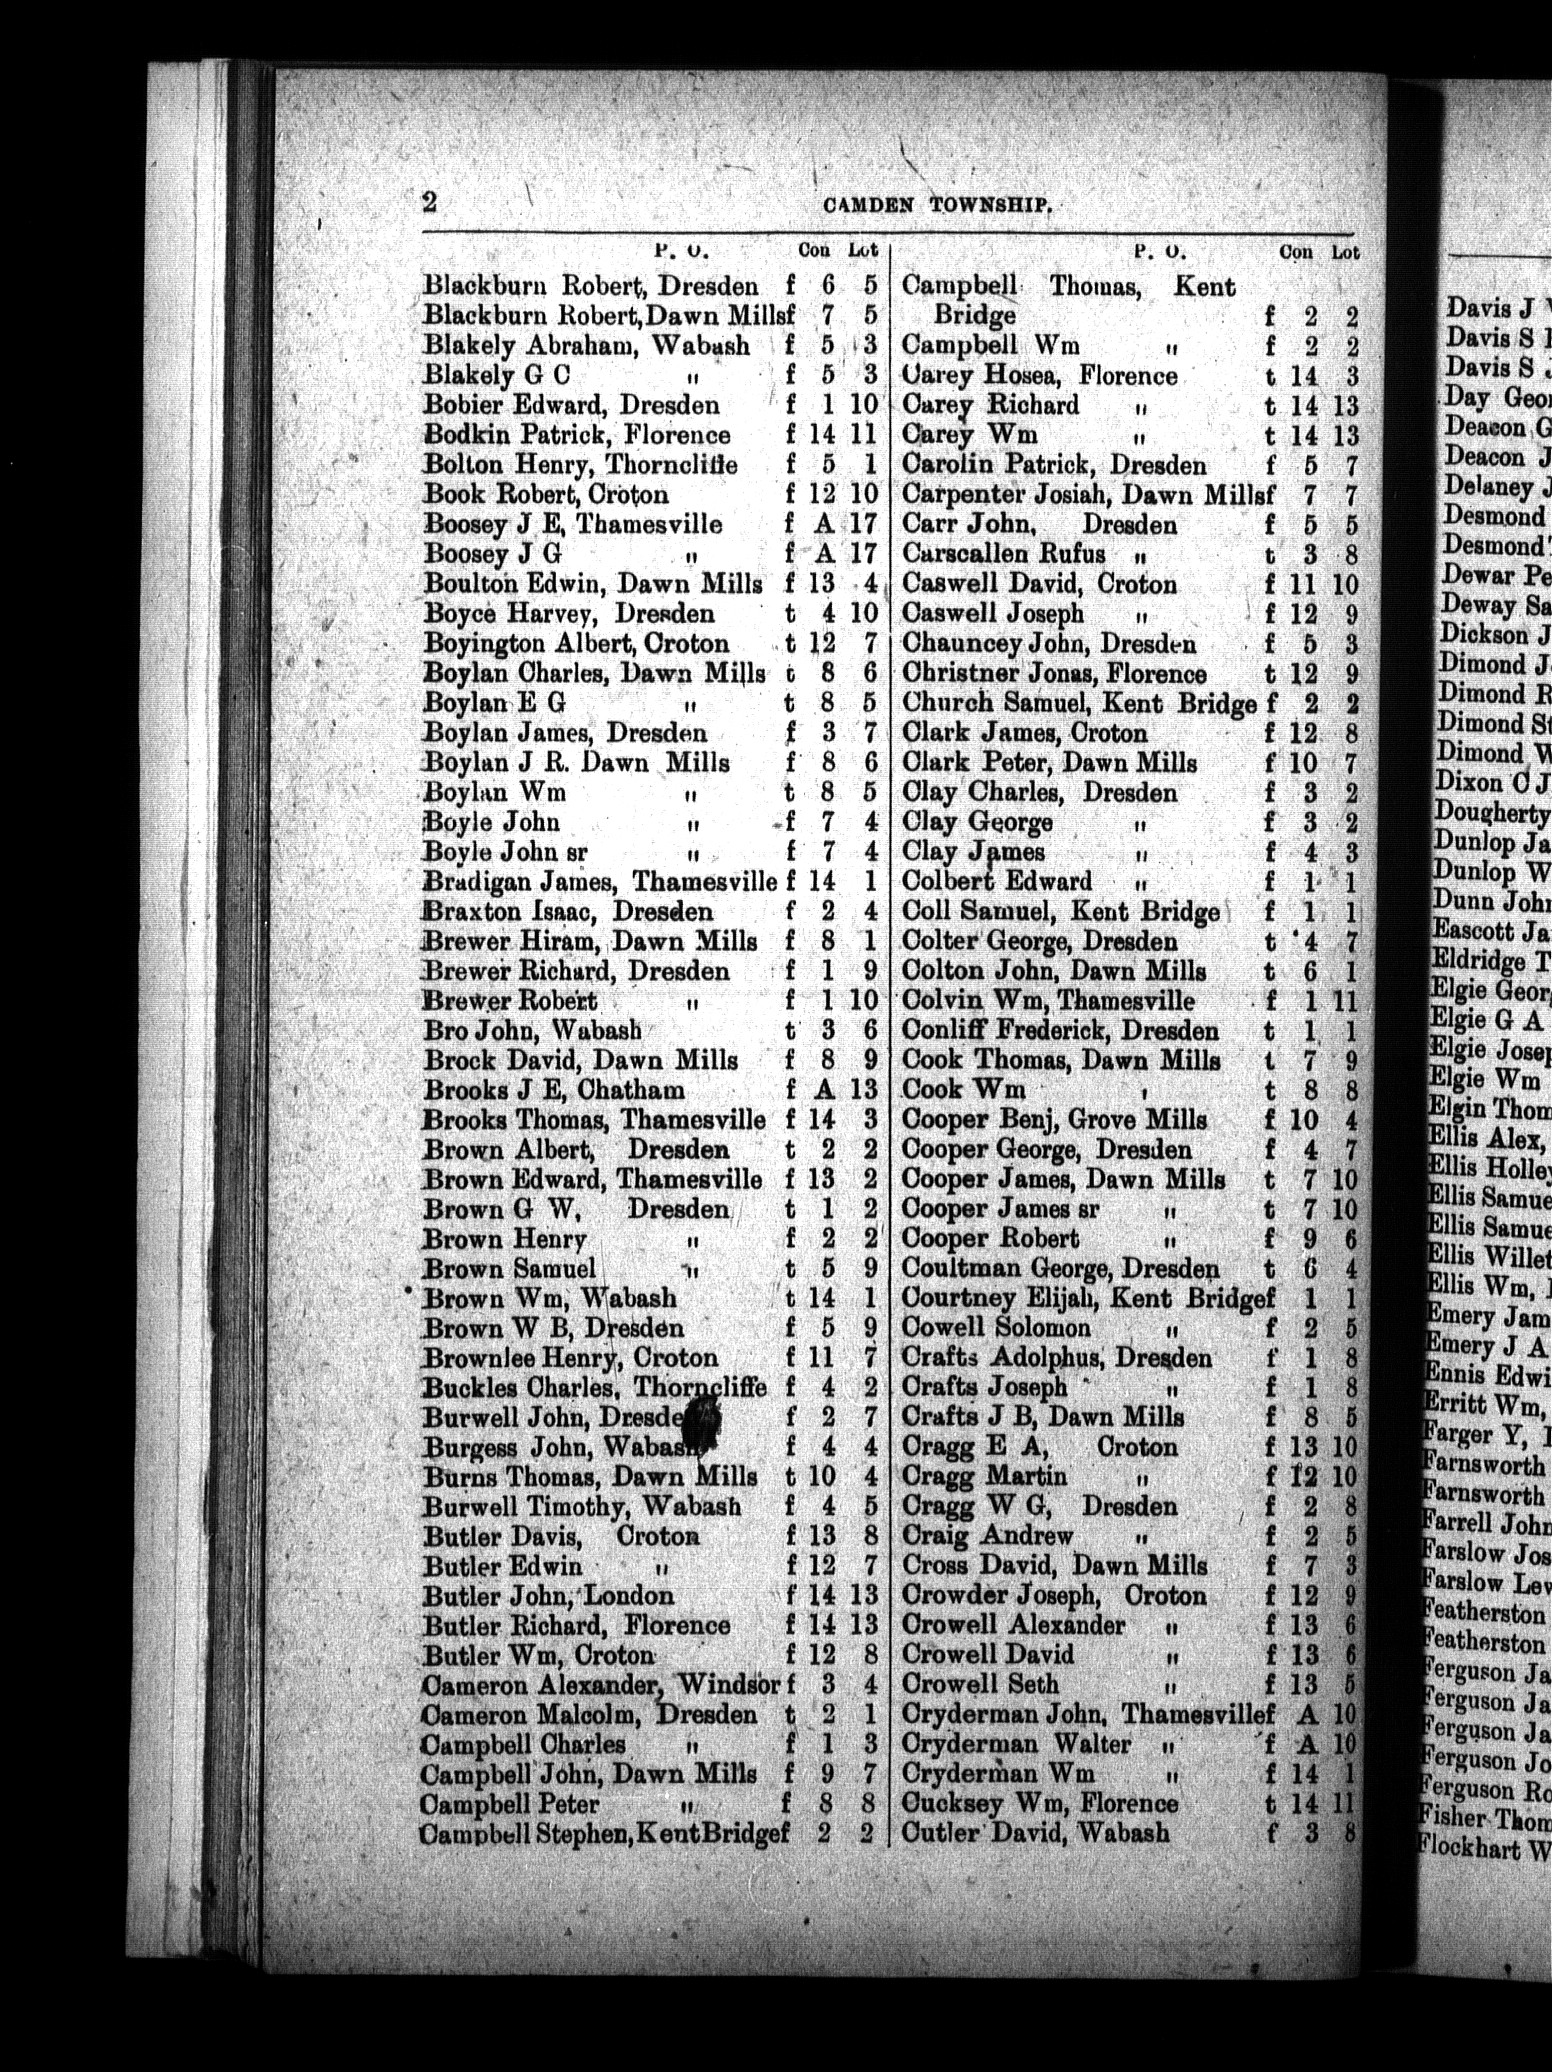 2 CAMDEN TOWNSHIP.
P. O. Con Lot
Blackburn Robert, Dresden f 6 5
Blackburn Robert, Dawn Mills f 7 5
Blakely Abraham, Wabash f 5 3
Blakely G C " f 5 3
Bobier Edward, Dresden f 1 10
Bodkin Patrick, Florence f 14 11
Bolton Henry, Thorncliffe f 5 1
Book Robert, Croton f 12 10
Boosey J E, Thamesville f A 17
Boosey J G " f A 17
Boulton Edwin, Dawn Mills f 13 4
Boyce Harvey, Dresden t 4 10
Boyington Albert, Croton t 12 7
Boylan Charles, Dawn Mills t 8 6
Boylan E G " t 8 5
Boylan James, Dresden f 3 7
Boylan J R. Dawn Mills f 8 6
Boylan Wm " t 8 5
Boyle John " f 7 4
Boyle John sr " f 7 4
Bradigan James, Thamesville f 14 1
Braxton Isaac, Dresden f 2 4
Brewer Hiram, Dawn Mills f 8 1
Brewer Richard, Dresden f 1 9
Brewer Robert " f 1 10
Bro John, Wabash t 3 6
Brock David, Dawn Mills f 8 9
Brooks J E, Chatham f A 13
Brooks Thomas, Thamesville f 14 3
Brown Albert, Dresden t 2 2
Brown Edward, Thamesville f 13 2
Brown G W, Dresden t 1 2
Brown Henry " f 2 2
Brown Samuel " t 5 9
Brown Wm, Wabash t 14 1
Brown W B, Dresden f 5 9
Brownlee Henry, Croton f 11 7
Buckles Charles, Thorncliffe f 4 2
Burwell John, Dresde f 2 7
Burgess John, Wabash f 4 4
Burns Thomas, Dawn Mills t 10 4
Burwell Timothy, Wabash f 4 5
Butler Davis, Croton f 13 8
Butler Edwin " f 12 7
Butler John, London f 14 13
Butler Richard, Florence f 14 13
Butler Wm, Croton f 12 8
Cameron Alexander, Windsor f 3 4
Cameron Malcolm, Dresden t 2 1
Campbell Charles " f 1 3
Campbell John, Dawn Mills f 9 7
Campbell Peter " f 8 8
Campbell Stephen, Kent Bridge f 2 2
P. O. Con Lot
Campbell Thomas, Kent
Bridge f 2 2
Campbell Wm " f 2 2
Carey Hosea, Florence t 14 3
Carey Richard " t 14 13
Carey Wm " t 14 13
Carolin Patrick, Dresden f 5 7
Carpenter Josiah, Dawn Mills f 7 7
Carr John, Dresden f 5 5
Carscallen Rufus " t 3 8
Caswell David, Croton f 11 10
Caswell Joseph " f 12 9
Chauncey John, Dresden f 5 3
Christner Jonas, Florence t 12 9
Church Samuel, Kent Bridge f 2 2
Clark James, Croton f 12 8
Clark Peter, Dawn Mills f 10 7
Clay Charles, Dresden f 3 2
Clay George " f 3 2
Clay James " f 4 3
Colbert Edward " f 1 1
Coll Samuel, Kent Bridge f 1 1
Colter George, Dresden t 4 7
Colton John, Dawn Mills t 6 1
Colvin Wm, Thamesville f 1 11
Conliff Frederick, Dresden t 1 1
Cook Thomas, Dawn Mills t 7 9
Cook Wm ' t 8 8
Cooper Benj, Grove Mills f 10 4
Cooper George, Dresden f 4 7
Cooper James, Dawn Mills t 7 10
Cooper James sr " t 7 10
Cooper Robert " f 9 6
Coultman George, Dresden t 6 4
Courtney Elijah, Kent Bridge f 1 1
Cowell Solomon " f 2 5
Crafts Adolphus, Dresden f 1 8
Crafts Joseph " f 1 8
Crafts J B, Dawn Mills f 8 5
Cragg E A, Croton f 13 10
Cragg Martin " f 12 10
Cragg W G, Dresden f 2 8
Craig Andrew " f 2 5
Cross David, Dawn Mills f 7 3
Crowder Joseph, Croton f 12 9
Crowell Alexander " f 13 6
Crowell David " f 13 6
Crowell Seth " f 13 5
Cryderman John, Thamesville f A 10
Cryderman Walter " f A 10
Cryderman Wm " f 14 1
Cucksey Wm, Florence t 14 11
Cutler David, Wabash f 3 8
Davis J
Davis S
Davis S
Day
Deacon
Deacon
Delaney
Desmond
Desmond
Dewar
Deway
Dickson
Dimond
Dimond
Dimond
Dimond
Dixon C J
Dougherty
Dunlop
Dunlop
Dunn
Eascott
Eldridge
Elgie
Elgie G A
Elgie
Elgie Wm
Elgin
Ellis Alex,
Ellis
Ellis
Ellis
Ellis
Ellis Wm,
Emery
Emery J A
Ennis
Erritt Wm,
Farger Y,
Farnsworth
Farnsworth
Farrell
Farslow
Farslow
Featherston
Featherston
Ferguson
Ferguson
Ferguson
Ferguson
Ferguson
Fisher
Flockhart